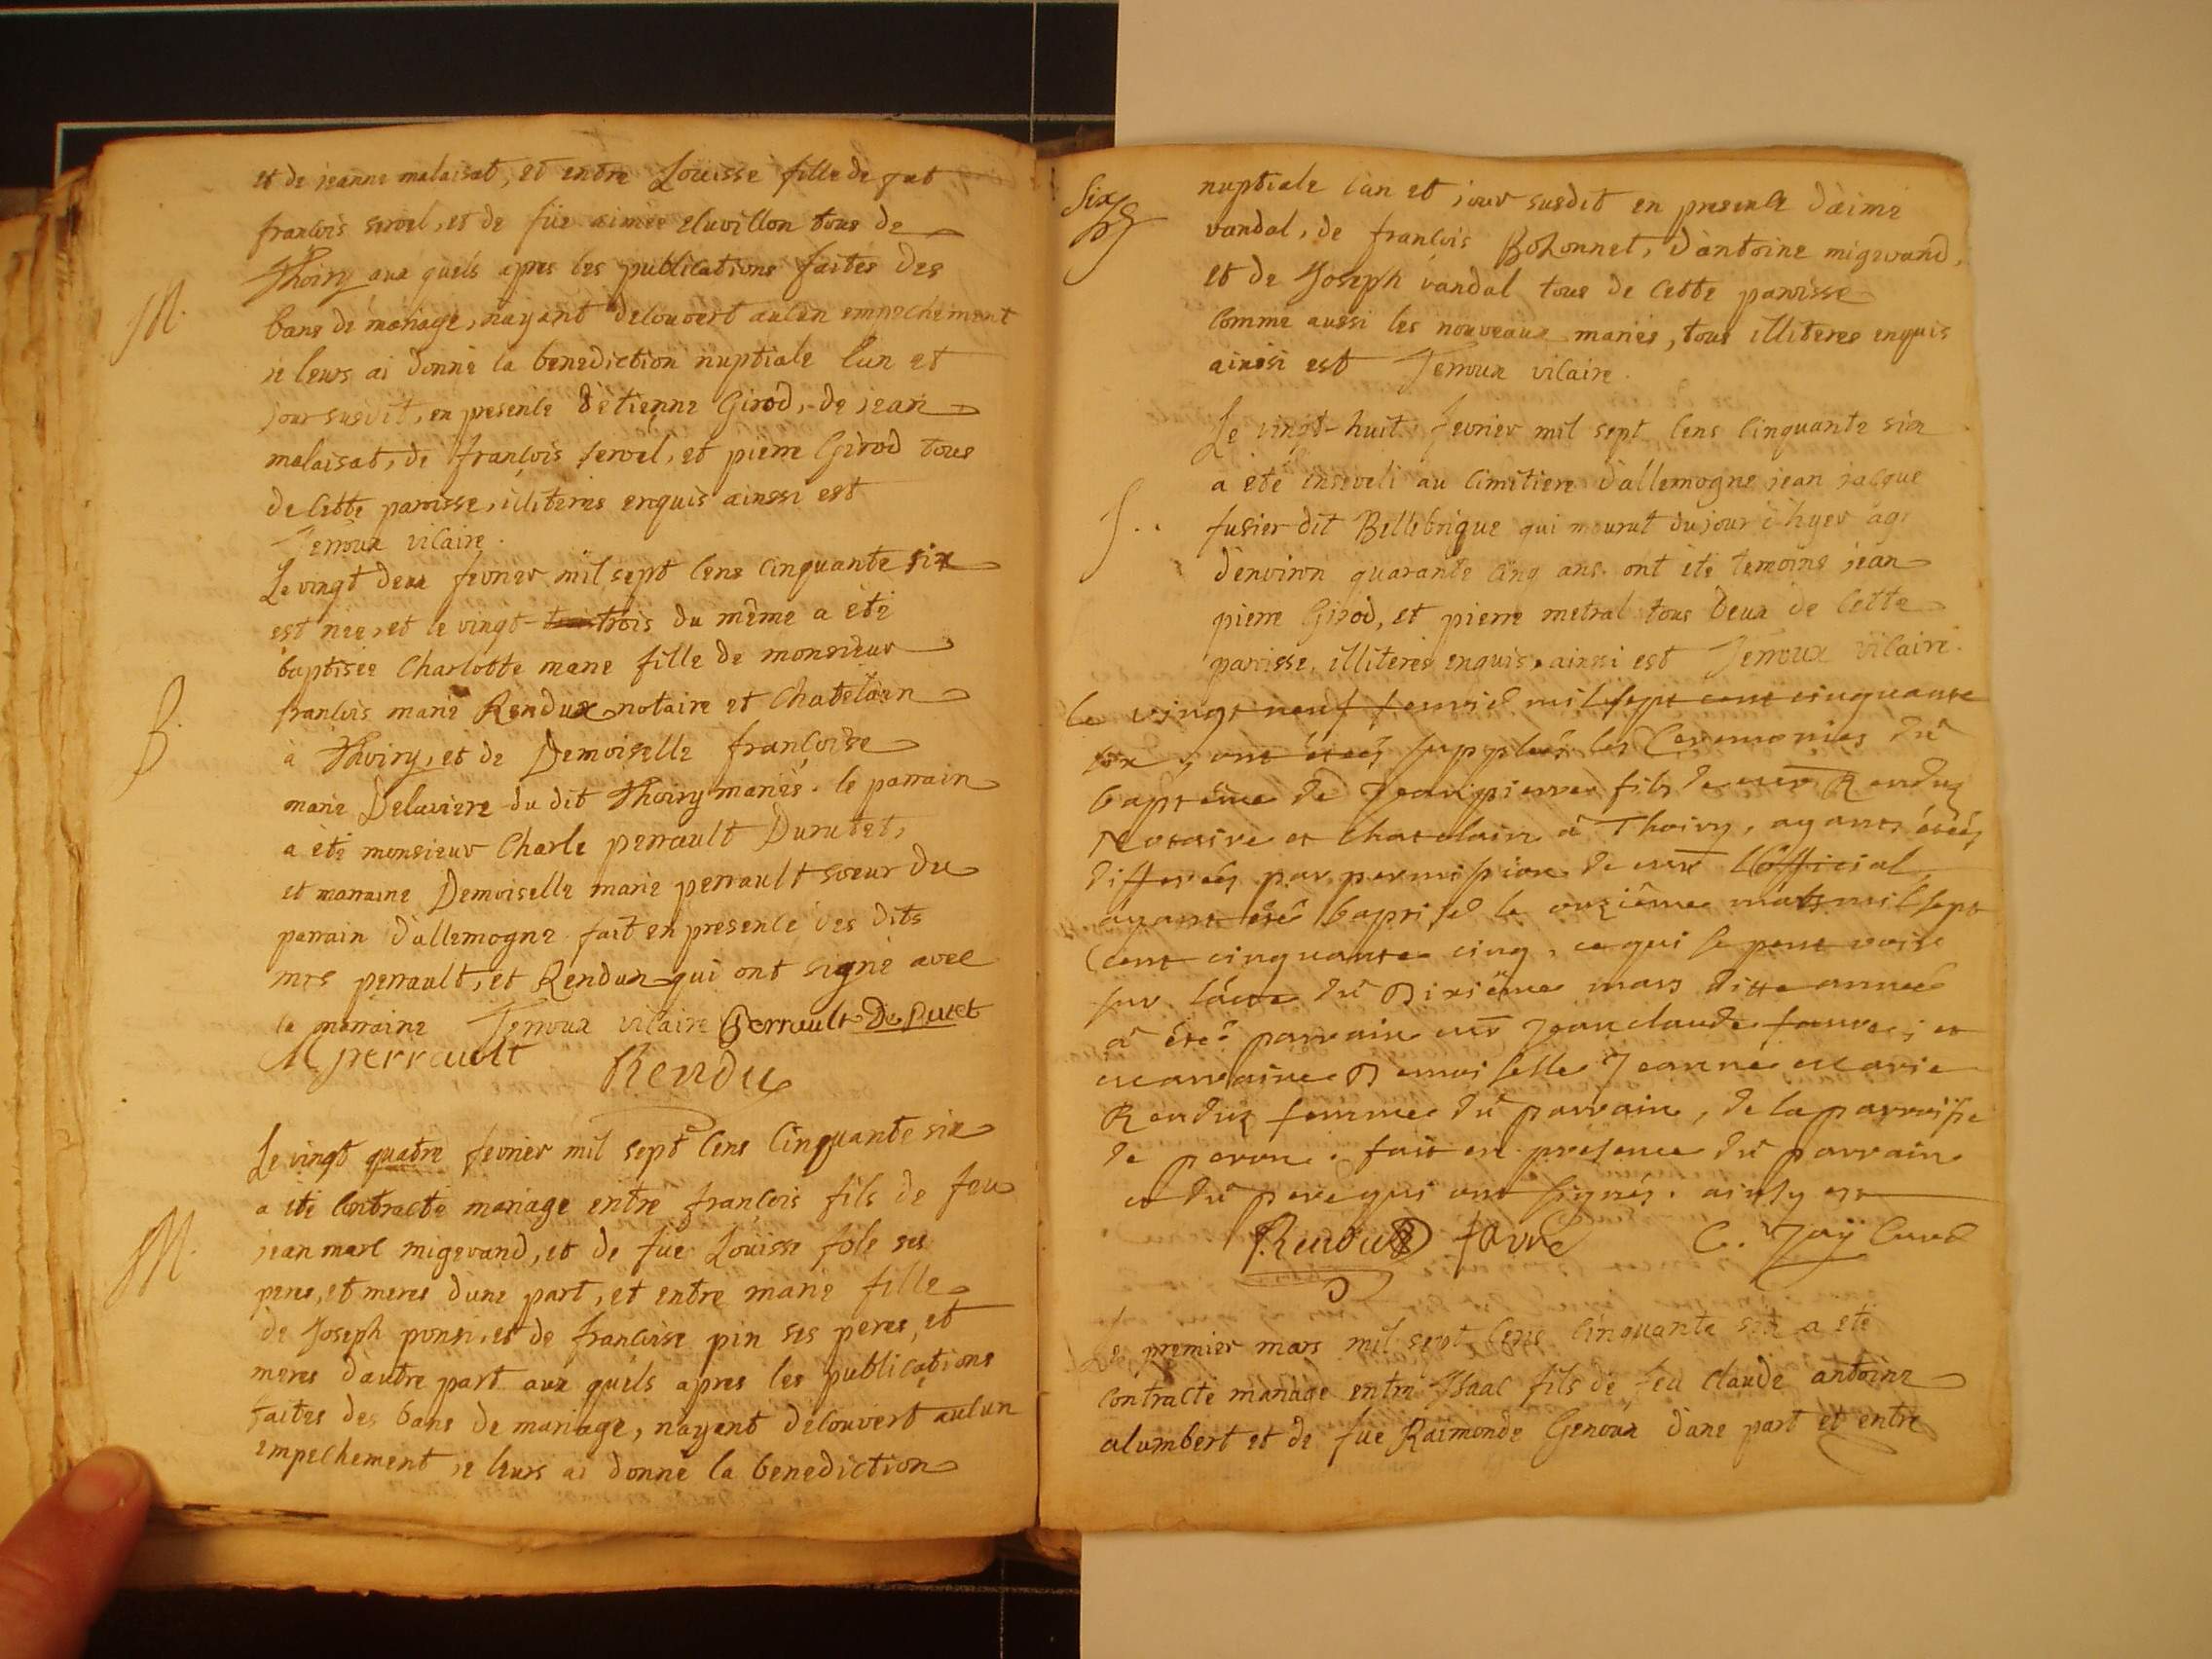 et de jeanne malaisat, et entre Louisse fille de fut
francois servel, et de füe aimée eluvillon tous de
Thoiry aux quels apres les publications faites des
M.
bans de mariage, nayant decouvert aucun empechement
je leurs ai donné la benediction nuptiale l'an et
jour susdit, en presence d'ètienne Girod, de jean
malaisat, de françois servel, et pierre Girod tous
de cette paroisse, illiteres enquis ainssi est
Jerroux vicaire.
Le vingt deux fevrier mil sept cens cinquante six
est neé, et le vingt trois du même a èté
baptisée Charlotte marie fille de monsieur
B.
francois marie Rendux notaire et Chatelain
à Thoiry, et de Demoiselle françoise
marie Delaviere du dit Thoiry mariés. le parrain
a èté monsieur Charle perrault Durutet,
et marraine Demoiselle marie perrault soeur du
parrain d'allemogne fait en presence des dits
mrs perrault, et Rendux qui ont signé avec
la marraine Jerroux vicaire Perrault De Rutet
M perrault Rendu
Le vingt quatre fevrier mil sept cens cinquante six
a èté contracté mariage entre françois fils de feu
M.
jean marc migevand, et de füe Louisse fole ses
peres, et meres d'une part, et entre marie fille
de Joseph ponsi, et de francoise pin ses peres, et
meres d'autre part aux quels apres les publications
faites des bans de mariage, nayant decouvert aucun
empechement je leurs ai donné la benediction
Six
nuptiale l'an et jour susdit en presence d'aimé
vandal, de françois Bozonnet, d'antoine migevand,
et de Joseph vandal tous de cette paroisse
comme aussi les nouveaux mariés, tous illiteres enquis
ainssi est Jerroux vicaire.
Le vingt-huit fevrier mil sept cens cinquante six
a èté enseveli au cimitiere d'allemogne jean jacque
S..
fusier dit Bellebrique qui mourut du jour d'hyer agé
d'environ quarante cinq ans. ont èté temoins jean
pierre Girod, et pierre metral tous deux de cette
paroisse, illiteres enquis, ainssi est Jerroux vicaire.
le vingt neuf fevrier mil sept cent cinquante
six, ont étéés suppleés les Ceremonies du
baptême de Jean pierre fils de mr Rendu
Notaire et chatelain à Thoiry, ayants étéés
differéés par permission de mr l'official,
ayant été baptisé le onzième mars mil sept
Cent cinquante cinq, ce qui se peut voir
sur l'acte du Dixième mars ditte année
à étéé parrain mr Jean claude favre, et
marraine Demoiselle Jeanne marie
Rendu femme du parrain, de la parroisse
de peron. fait en presence du parrain
et du pere qui ont signés. ainsy est
Rendu favre C. Jaÿ Curé
Le premier mars mil sept cens cinquante six a èté
contracté mariage entre Isaac fils de feu claude antoine
alumbert et de füe Raimonde Genoux d'une part et entre